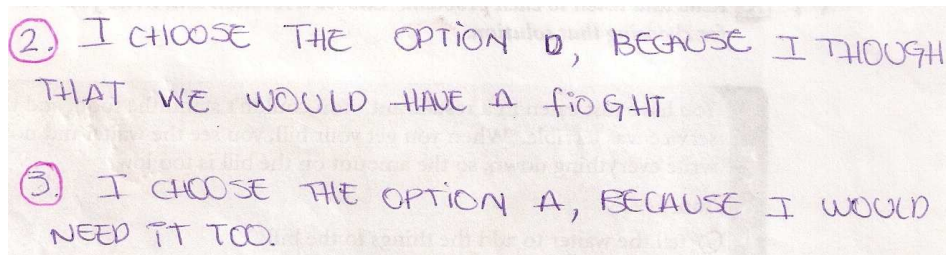 2. I CHOOSE THE OPTION D, BECAUSE I THOUGH
THAT WE WOULD HAVE A fiOGHT
3. I CHOOSE THE OPTION A, BECAUSE I WOULD
NEED IT TOO.